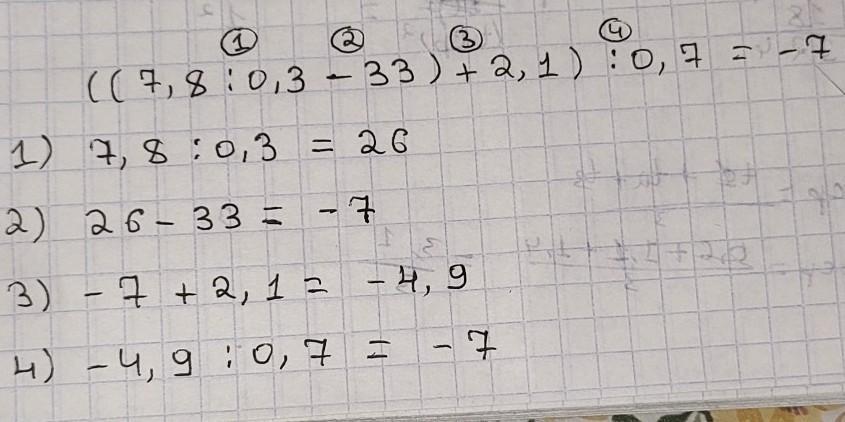 ① ② ③ ④
((7,8 : 0,3 - 33) + 2,1) : 0,7 = -7
1) 7,8 : 0,3 = 26
2) 26 - 33 = -7
3) -7 + 2,1 = -4,9
4) -4,9 : 0,7 = -7